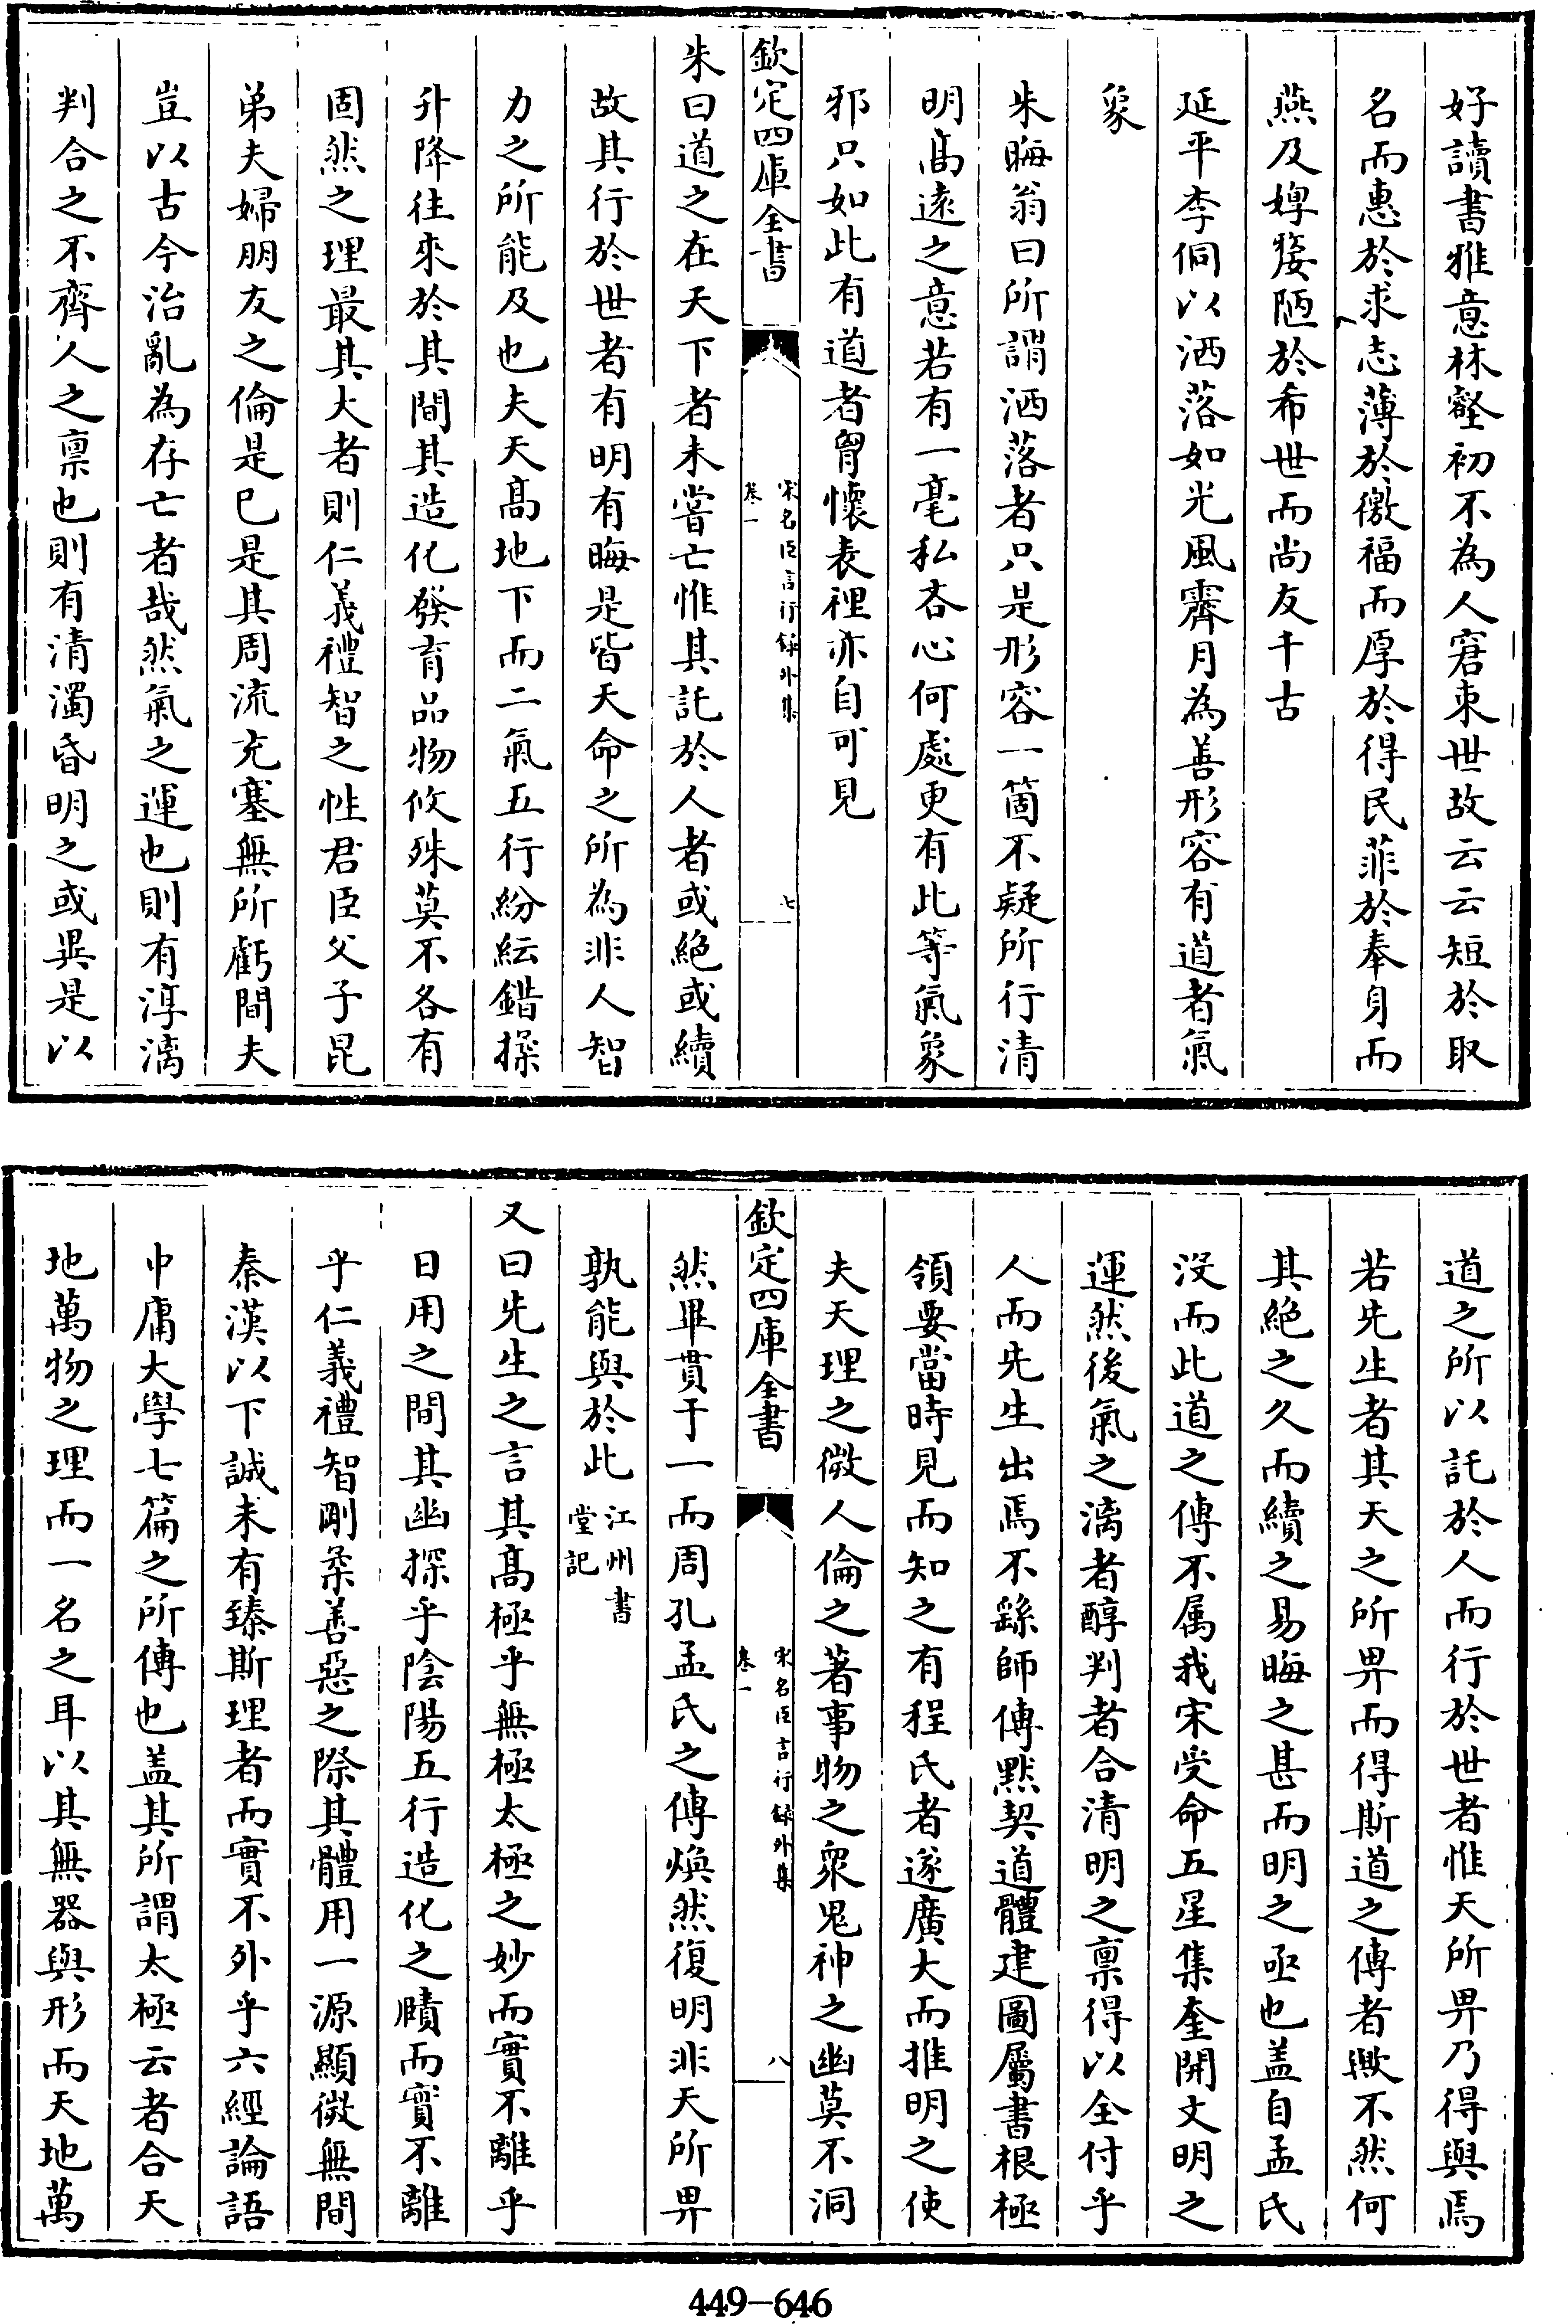 好讀書雅意林壑初不為人窘束世故云云短於取
名而惠於求志薄於徼福而厚於得民菲於奉身而
燕及㷀嫠陋於希世而尚友千古
延平李侗以洒落如光風霽月為善形容有道者氣
象
朱晦翁曰所謂洒落者只是形容一箇不疑所行清
明髙遠之意若有一毫私吝心何處更有此等氣象
邪只如此有道者胷懷表裡亦自可見
欽定四庫全書
宋名臣言行録外集
卷一
七
朱曰道之在天下者未嘗亡惟其託於人者或絶或續
故其行於世者有明有晦是皆天命之所為非人智
力之所能及也夫天髙地下而二氣五行紛紜錯揉
升降往來於其間其造化發育品物攸殊莫不各有
固然之理最其大者則仁義禮智之性君臣父子昆
弟夫婦朋友之倫是已是其周流充塞無所虧間夫
豈以古今治亂為存亡者哉然氣之運也則有淳漓
判合之不齊人之禀也則有清濁昏明之或異是以
道之所以託於人而行於世者惟天所畀乃得與焉
若先生者其天之所畀而得斯道之傳者歟不然何
其絶之久而續之易晦之甚而明之亟也盖自孟氏
沒而此道之傳不属我宋受命五星集奎開文明之
運然後氣之漓者醇判者合清明之禀得以全付乎
人而先生出焉不繇師傳黙契道體建圖屬書根極
領要當時見而知之有程氏者遂廣大而推明之使
夫天理之微人倫之著事物之衆鬼神之幽莫不洞
欽定四庫全書
宋名臣言行録外集
卷一
八
然畢貫于一而周孔孟氏之傳煥然復明非天所畀
孰能與於此江州書
堂記
又曰先生之言其髙極乎無極太極之妙而實不離乎
日用之間其幽探乎陰陽五行造化之賾而實不離
乎仁義禮智剛柔善惡之際其體用一源顯微無間
秦漢以下誠未有臻斯理者而實不外乎六經論語
中庸大學七篇之所傳也盖其所謂太極云者合天
地萬物之理而一名之耳以其無器與形而天地萬
449-646